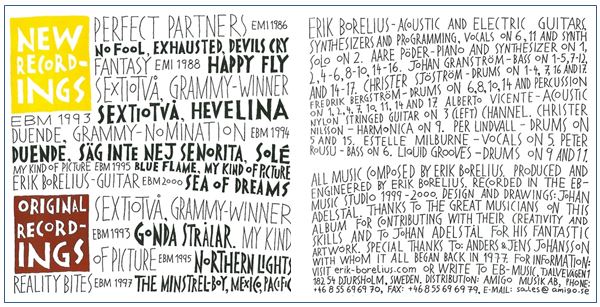 NEW RECORD-INGS
PERFECT PARTNERS EMI 1986
NO FOOL, EXHAUSTED, DEVILS CRY
FANTASY EMI 1988 HAPPY FLY
SEXTIOTVÅ, GRAMMY-WINNER
EBM 1993 SEXTIOTVÅ, HEVELINA
DUENDE, GRAMMY-NOMINATION EBM 1994
DUENDE, SÄG INTE NEJ SENORITA, SOLÉ
MY KIND OF PICTURE EBM 1995 BLUE FLAME, MY KIND OF PICTURE
ERIK BORELIUS-GUITAR EBM 2000 SEA OF DREAMS
ORIGINAL RECORD-INGS
SEXTIOTVÅ, GRAMMY-WINNER
EBM 1993 GONDA STRÅLAR. MY KIND
OF PICTURE EBM 1995 NORTHERN LIGHTS
REALITY BITES EBM 1997 THE MINSTREL-BOY, MEXIG, PACIFIC
ERIK BORELIUS-ACOUSTIC AND ELECTRIC GUITARS,
SYNTHESIZERS AND PROGRAMMING, VOCALS ON 6, 11 AND SYNTH
SOLO ON 2. AARE PÕDER-PIANO AND SYNTHESIZER ON 1,
2, 4-6, 8-10, 14-16. JOHAN GRANSTRÖM-BASS ON 1-5, 7-12,
AND 14-17. CHRISTER SJÖSTRÖM-DRUMS ON 1-4, 7, 16 AND 17.
FREDRIK BERGSTRÖM-DRUMS ON 6, 8, 10, 14 AND PERCUSSION
ON 1, 2, 4, 7, 10, 11, 14 AND 17. ALBERTO VICENTE-ACOUSTIC
NYLON STRINGED GUITAR ON 3 (LEFT) CHANNEL. CHRISTER
NILSSON-HARMONICA ON 9. PER LINDVALL-DRUMS ON
5 AND 15. ESTELLE MILBURNE-VOCALS ON 5. PETER
ROUSU-BASS ON 6. LIQUID GROOVES-DRUMS ON 9 AND 11.
ALL MUSIC COMPOSED BY ERIK BORELIUS. PRODUCED AND
ENGINEERED BY ERIK BORELIUS. RECORDED IN THE EB-
MUSIC STUDIO 1999-2000. DESIGN AND DRAWINGS: JOHAN
ADELSTÅL. THANKS TO THE GREAT MUSICIANS ON THIS
ALBUM FOR CONTRIBUTING WITH THEIR CREATIVITY AND
SKILLS, AND TO JOHAN ADELSTÅL FOR HIS FANTASTIC
ARTWORK. SPECIAL THANKS TO: ANDERS & JENS JOHANSSON
WITH WHOM IT ALL BEGAN BACK IN 1977. FOR INFORMATION:
VISIT erik-borelius.com OR WRITE TO EB-MUSIC, TJALVEVÄGEN 1
182 54 DJURSHOLM, SWEDEN. DISTRIBUTION: AMIGO MUSIK AB, PHONE:
+46 8 55 69 69 70, FAX: +46 8 55 69 69 79. E-MAIL: sales@amigo.se